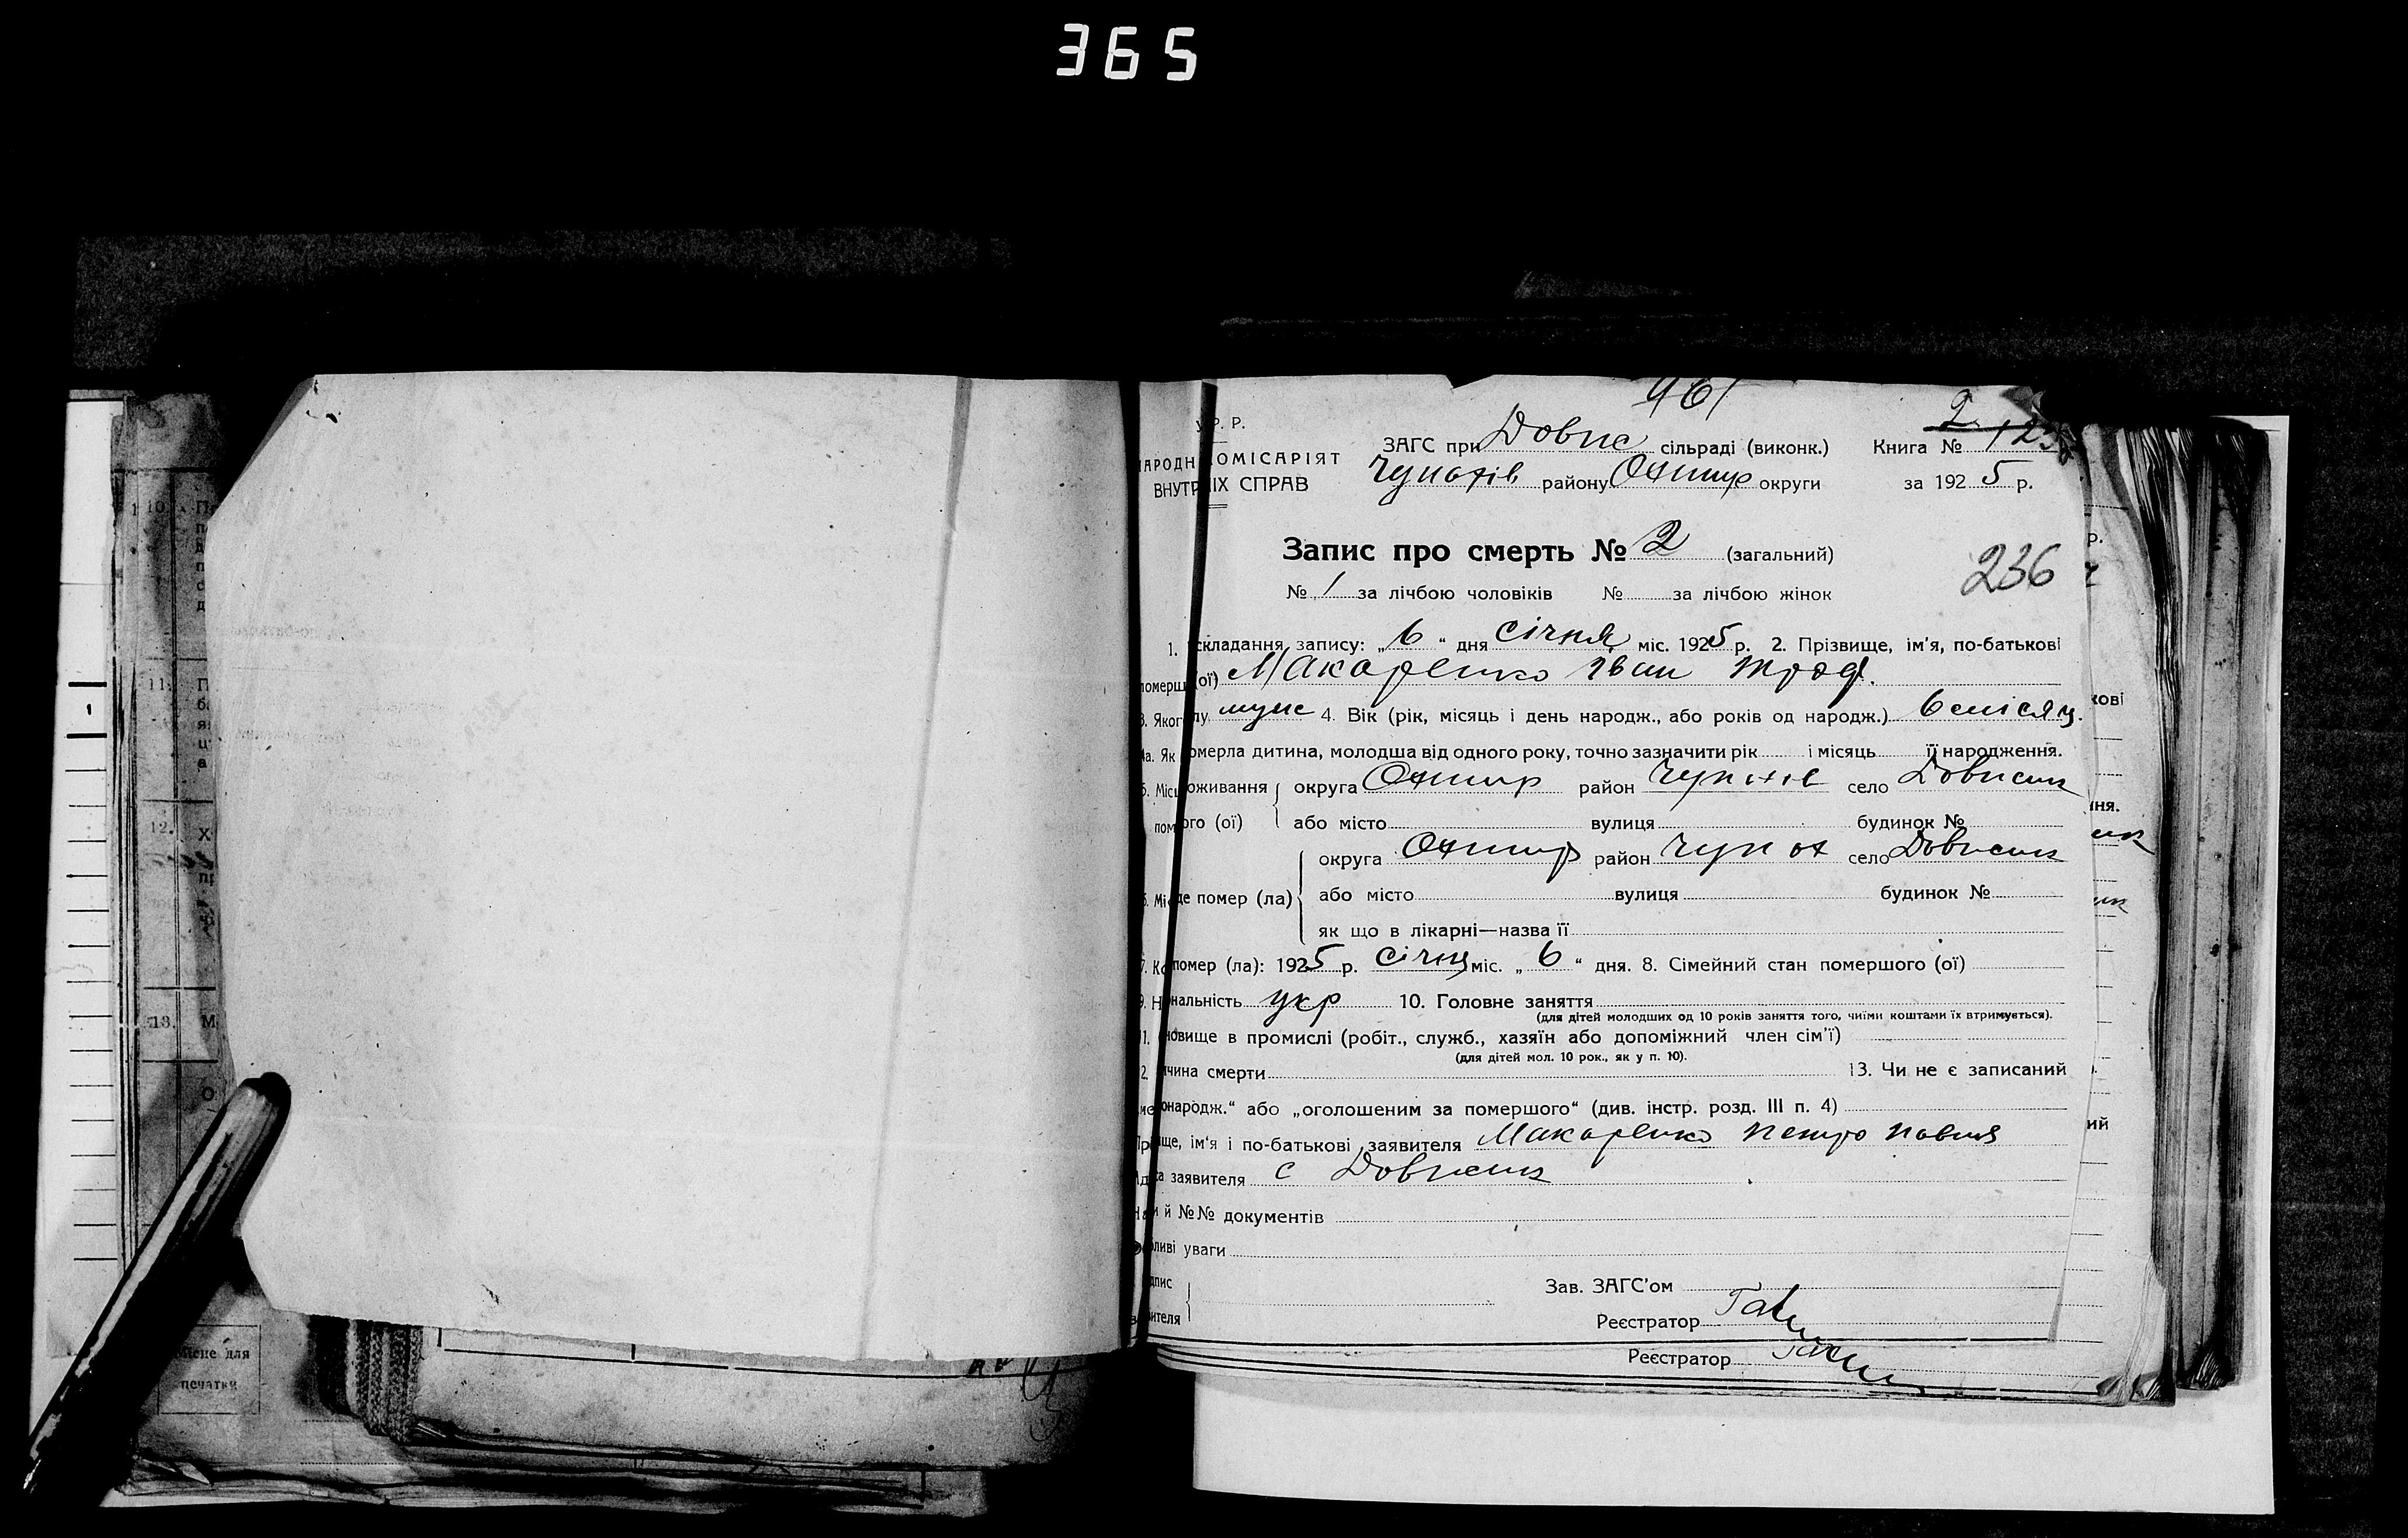 365
961
У.Р.Р.
2
ЗАГС при Довж сільраді (виконк.) Книга № 123
НАРОДН КОМІСАРІЯТ
ВНУТР ІХ СПРАВ
Чупахів району Охтир округи за 1925 р.
Запис про смерть № 2 (загальний)
236
№ 1 за лічбою чоловіків № за лічбою жінок
1. складання запису: „6“ дня січня міс. 1925 р. 2. Прізвище, ім'я, по-батькові
померш (ої) Макаренко Іван Троф.
3. Яког лу муж 4. Вік (рік, місяць і день народж., або років од народж.) 6 місяц.
4а. Як омерла дитина, молодша від одного року, точно зазначити рік і місяць її народження.
5. Місц оживання округа Охтир район Чупахів село Довжик
пом ого (ої) або місто вулиця будинок №
округа Охтир район Чупах село Довжик
6. Мі де помер (ла) або місто вулиця будинок №
як що в лікарні—назва її
7. Ко помер (ла): 1925 р. січня міс. „6“ дня. 8. Сімейний стан помершого (ої)
9. Н нальність укр 10. Головне заняття
(для дітей молодших од 10 років заняття того, чиїми коштами їх втримується).
11. новище в промислі (робіт., служб., хазяїн або допоміжний член сім'ї)
(для дітей мол. 10 рок., як у п. 10).
12. ичина смерти 13. Чи не є записаний
онародж.“ або „оголошеним за помершого“ (див. інстр. розд. III п. 4)
Прі ище, ім'я і по-батькові заявителя Макаренко Петро Павл
Ад са заявителя с Довжик
й №№ документів
ливі уваги
дпис
ителя
Зав. ЗАГС'ом
Реєстратор
Реєстратор
10.
11.
12.
13.
Місце для
печатки